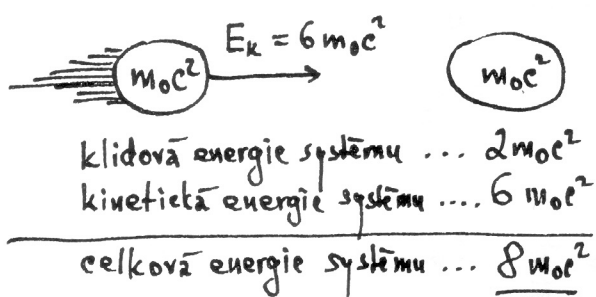 E_k = 6 m₀c²
m₀c² m₀c²
klidová energie systému ... 2m₀c²
kinetická energie systému .... 6 m₀c²
celková energie systému ... 8 m₀c²